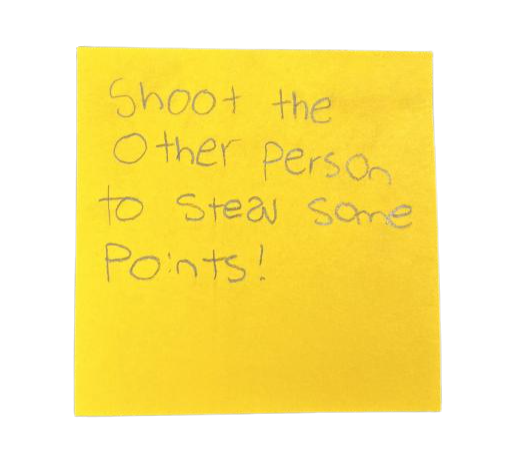 Shoot the
Other person
to steal some
Points!